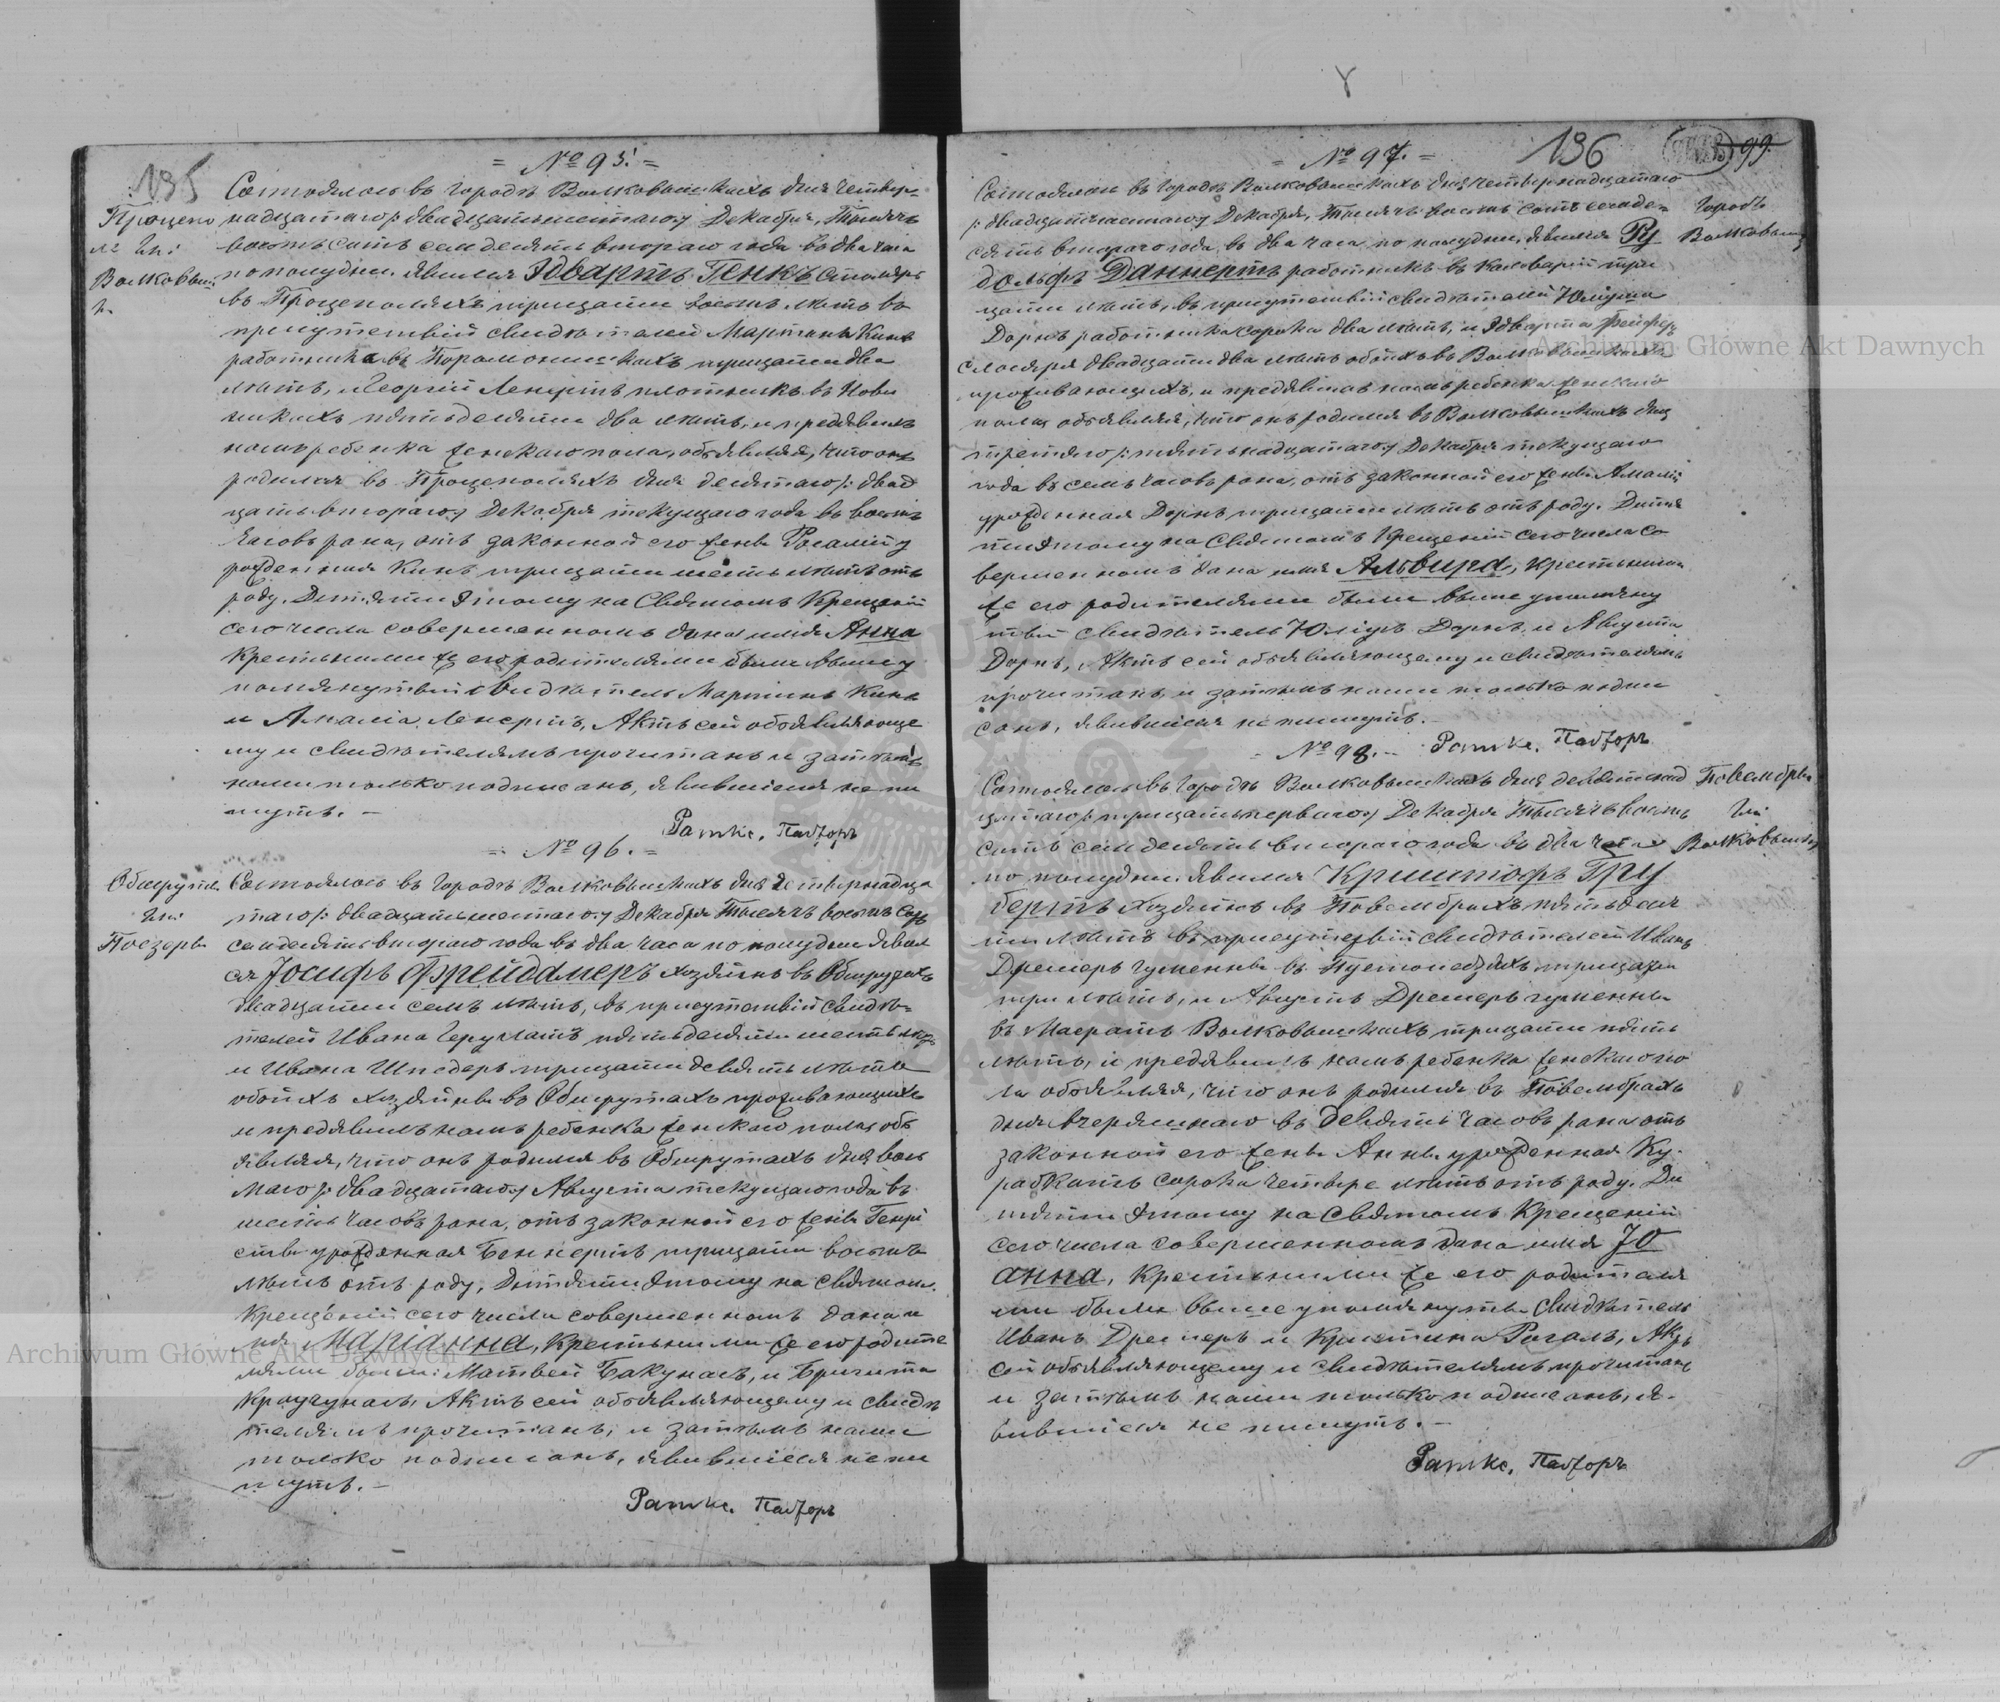 135
= № 95. =
Состоялось въ городѣ Волковышкахъ дня четыр-
надцатаго /: двадцать шестаго :/ Декабря, Тысяча
восемь сотъ семдесятъ втораго года въ два часа
по полудни. явился Эдвартъ Генкъ столяръ
въ Проценоляхъ тридцати восемь лѣтъ въ
присутствіи свидѣтелей Мартына Кинъ
работника въ тридцати два
лѣтъ, и Георгій Ленертъ плотникъ въ Нови
никахъ пятьдесяти два лѣтъ, и предявилъ
намъ ребенка женскаго пола, объявляя, что онъ
родился въ Проценоляхъ дня десятаго /: двад
цать втораго :/ Декабря текущаго года въ восемь
часовъ рана, отъ законной его жены Розаліи у
рожденная Кинъ тридцати шесть лѣтъ отъ
роду. Дитяти этому на Святомъ Крещеніи
сего числа совершенномъ дана имя Анна
Крестными же его родителями были выше у
помянутый свидѣтель Мартинъ Кинъ
и Амалія Ленертъ, Актъ сей объявляюще
му и свидѣтелямъ прочитанъ и затѣмъ
нами только подписанъ, явившіеся не пи
шутъ. —
Ратке, Пасторъ
Волковыш
= № 96. =
Состоялось въ городѣ Волковышкахъ дня четырнадца
таго /: двадцать шестаго :/ Декабря Тысяча восемь сотъ
семдесятъ втораго года въ два часа по полудни явил
ся Іосифъ Фрейдамеръ хозяинъ въ Обшрутахъ
двадцати семь лѣтъ, въ присутствіи свидѣ-
телей Ивана пятьдесяти шесть лѣтъ
и Ивана Шнедеръ тридцати девять лѣтъ
обоихъ хозяйнъ въ Обшрутахъ проживающихъ
и предявилъ намъ ребенка женскаго пола, объ
являя, что онъ родился въ Обшрутахъ дня вось
маго /: двадцатаго :/ Августа текущаго года въ
шесть часовъ рана, отъ законной его жены Генрі
еты урожденная Беннертъ тридцати восемь
лѣтъ отъ роду, Дитяти этому на святомъ
Крещеніи сего числа совершенномъ дана и
мя Маріанна, Крестными же его родите
лями были: Матвей Бакунасъ, и Бригита
Актъ сей объявляющему и свидѣ
телямъ прочитанъ, и затѣмъ нами
только подписанъ, явившіеся не пи
шутъ. —
Ратке. Пасторъ
Обшруты
гм:
Поезеры
136
99.
= № 97. =
Состоялось въ городѣ Волковышкахъ дня четырнадцатаго
/: двадцать шестаго :/ Декабря, Тысяча восемь сотъ семде-
сятъ втораго года въ два часа по полудни, явился Ру
дольфъ Даннертъ работникъ въ Кальваріи три
цати лѣтъ, въ присутствіи свидѣтелей Юліуша
Дорнъ работника сорока два лѣтъ, и Эдварта
слесаря двадцати два лѣтъ обоихъ въ Волковышкахъ
проживающихъ, и предявилъ намъ ребенка женскаго
пола, объявляя, что онъ родился въ Волковышкахъ дня
третяго /: пятьнадцатаго :/ Декабря текущаго
года въ семь часовъ рана, отъ законной его жены Амаліи
урожденная Дорнъ тридцати лѣтъ отъ роду. Дитя
ти этому на Святомъ Крещеніи сего числа со
вершенномъ дана имя Альвира, Крестными
же его родителями были выше упомяну
тый свидѣтель Юліушъ Дорнъ, и Августа
Дорнъ, Актъ сей объявляющему и свидѣтелямъ
прочитанъ, и затѣмъ нами только подпи
санъ, явившіеся не пишутъ. —
Ратке. Пасторъ
городъ
Волковышки
= № 98. —
Состоялось въ городѣ Волковышкахъ дня девятнад
цатаго /: тридцать перваго :/ Декабря Тысяча восемь
сотъ семдесятъ втораго года въ два часа
по полудни. явился Криштофъ Гру
бертъ хозяинъ въ Повембрахъ пятьдеся
ти лѣтъ въ присутствіи свидѣтелей Иванъ
Дремеръ въ тридцати
три лѣтъ, и Августъ Дремеръ
въ Волковышкахъ тридцати пять
лѣтъ, и предявилъ намъ ребенка женскаго по
ла объявляя, что онъ родился въ Повембрахъ
дня вчерашнаго въ девять часовъ рана отъ
законной его жены Анны урожденная Ку-
раткатъ сорока четыре лѣтъ отъ роду. Ди
тяти этому на Святомъ Крещеніи
сего числа совершенномъ дана имя Іо
анна, Крестными же его родителя
ми были выше упомянутый свидѣтель
Иванъ Дремеръ и Кристина Рогалъ, Актъ
сей объявляющему и свидѣтелямъ прочитанъ
и затѣмъ нами только подписанъ, я-
вившіеся не пишутъ. —
Ратке, Пасторъ
Повембры
гм
Волковышки
Archiwum Główne Akt Dawnych
Archiwum Główne Akt Dawnych